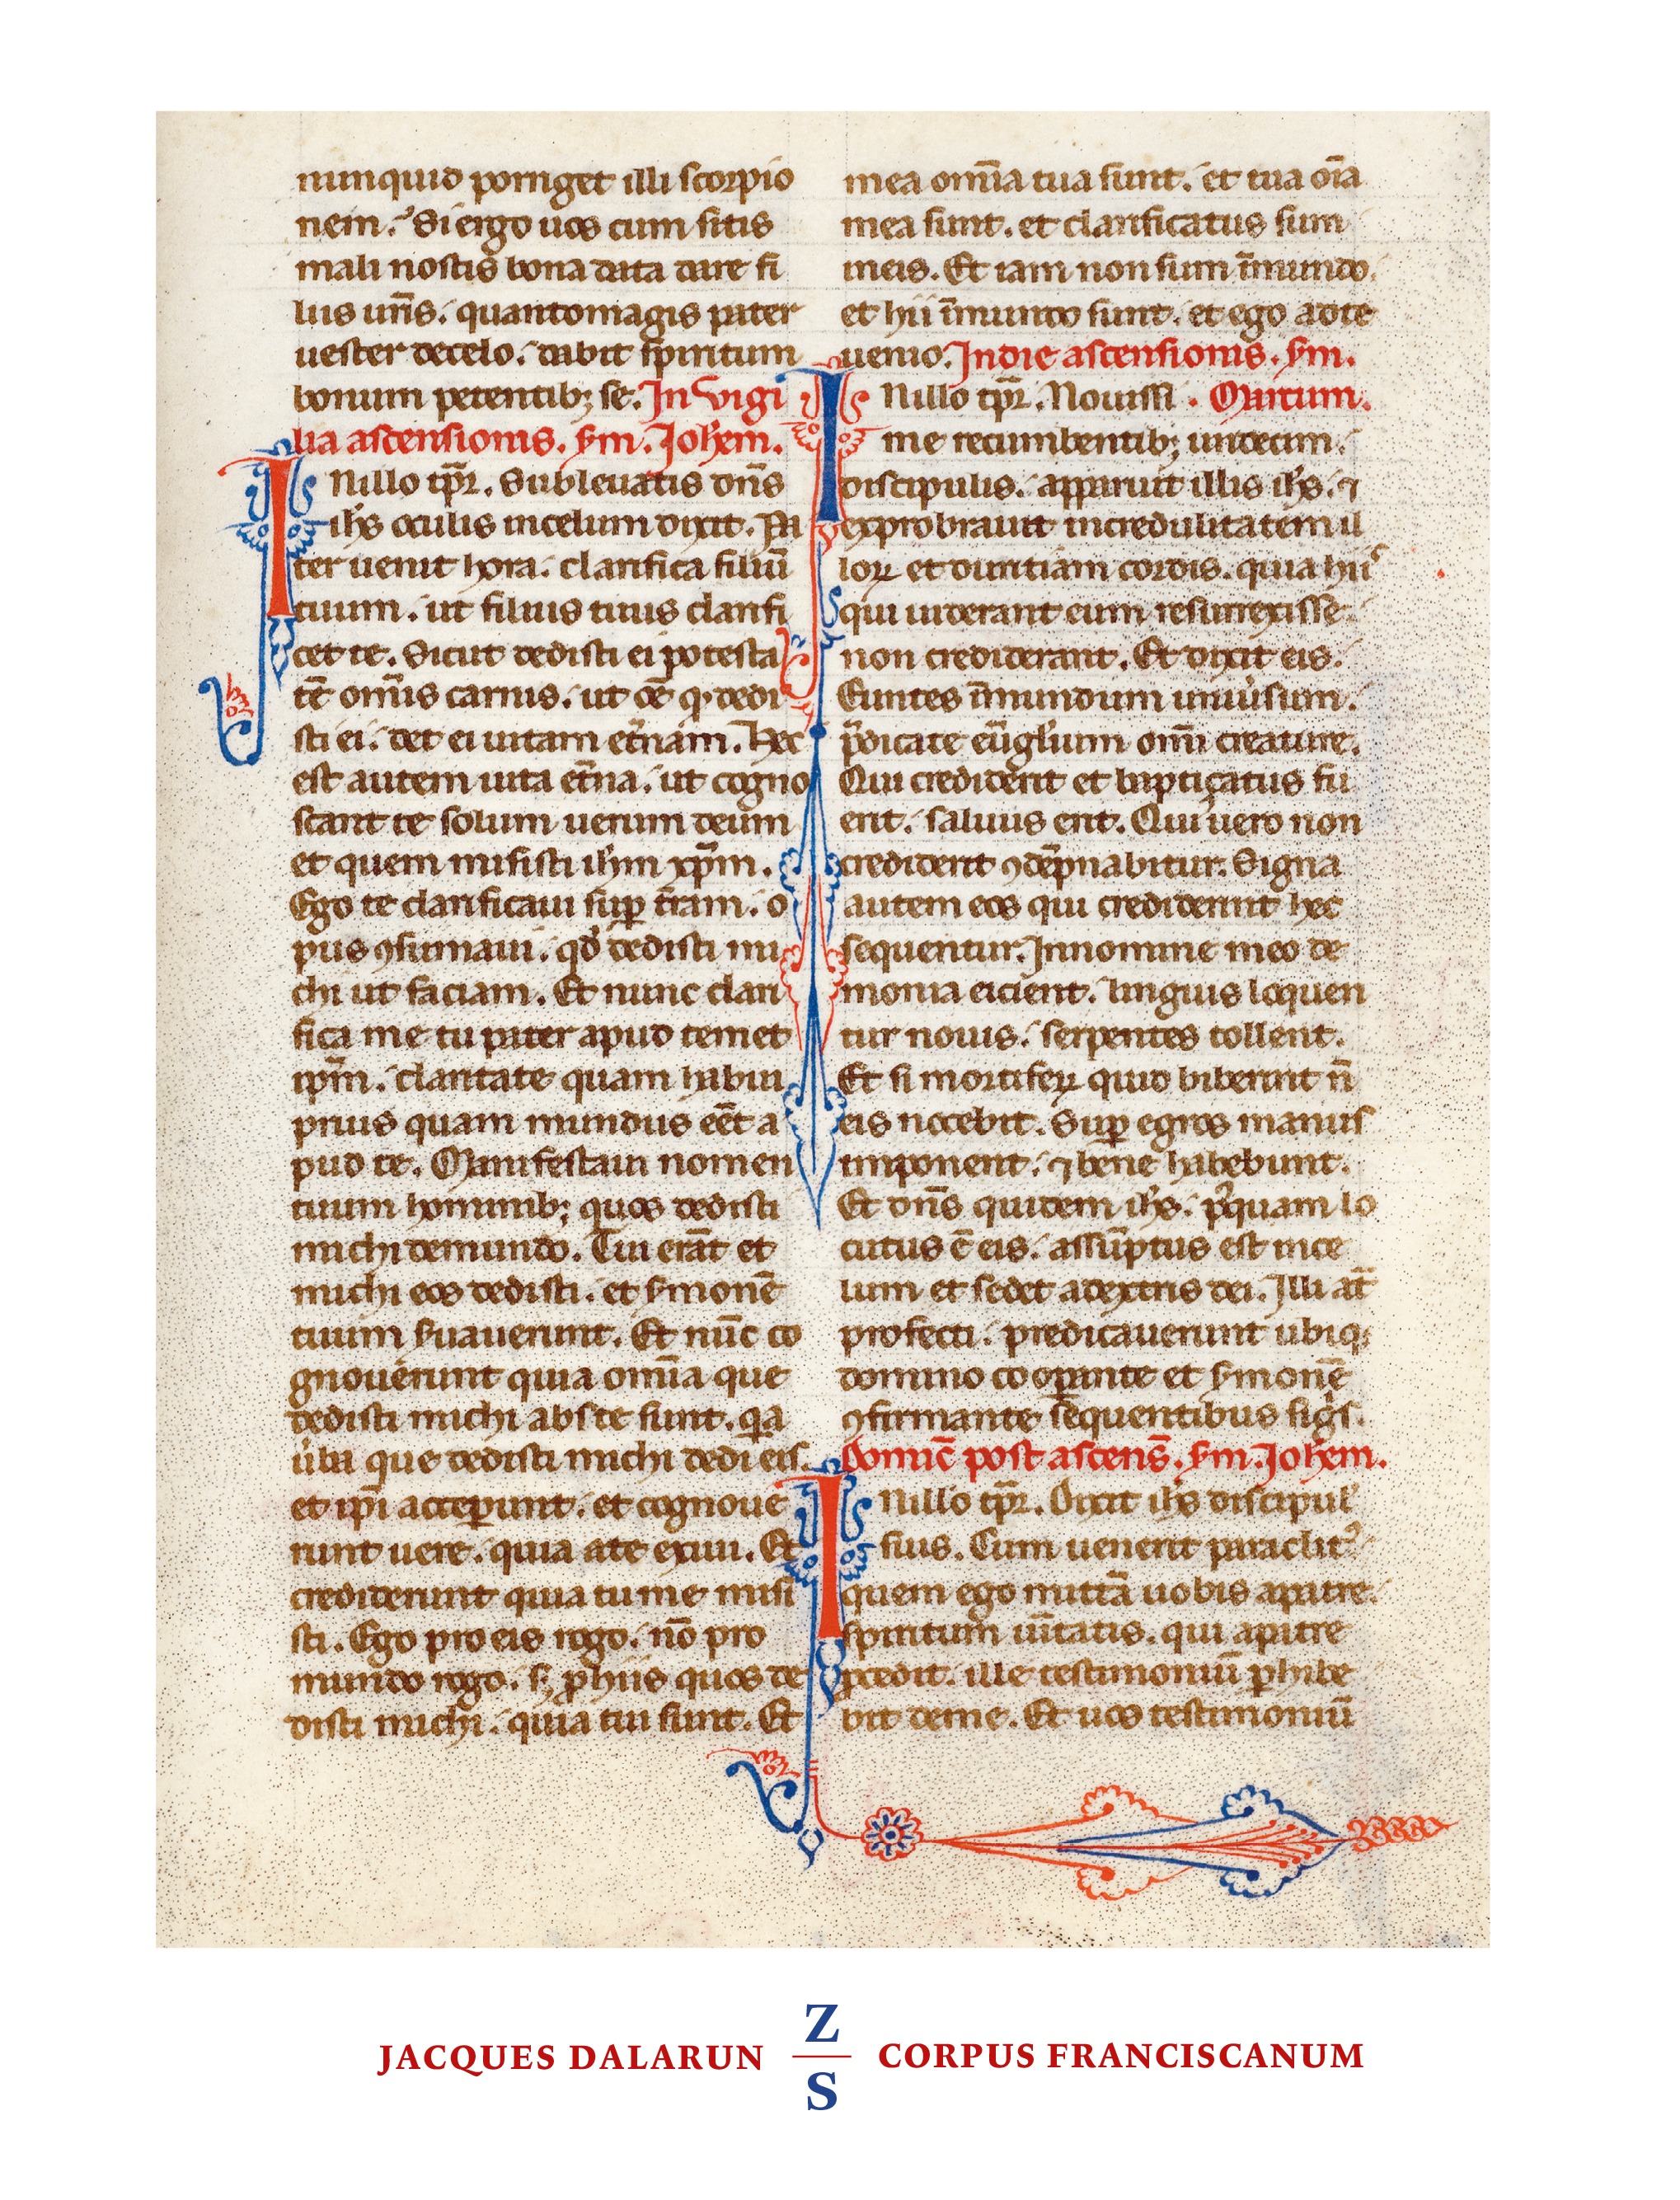 nunquid porriget illi scorpio
nem. Si ergo uos cum sitis
mali nostis bona data dare fi
liis ur̄is. quantomagis pater
uester decelo. dabit spiritum
bonum petentib; se. In vigi
lia ascensionis. sm. Joh̄em.
INillo tp̄r. Subleuatis dn̄s
ih̄s oculis incelum dixit. Pa
ter uenit hora. clarifica filiū
tuum. ut filius tuus clarifi
cet te. Sicut dedisti ei potesta
tē om̄is carnis. ut oē qͥ dedi
sti ei. det ei uitam et̄nam. Hec
est autem uita et̄na. ut cogno
scant te solum uerum deum
et quem misisti ih̄m xp̄m.
Ego te clarificaui suꝑ t̄ram. o
pus ꝯsumaui. qd̓ dedisti mi
chi ut faciam. Et nunc clari
fica me tu pater apud temet
ip̄m. claritate quam habui
prius quam mundus eēt a
pud te. Manifestaui nomen
tuum hominib; quos dedisti
michi demundo. Tui erāt et
michi eos dedisti. et s̓monē
tuum s̓uauerunt. Et nūc co
gnouerunt quia om̄ia que
dedisti michi abs te sunt. qͥa
u̓ba que dedisti michi dedi eis.
et ip̄i acceꝑunt. et cognoue
runt uere. quia ate exiui. Et
crediderunt quia tu me misi
sti. Ego pro eis rogo. nō pro
mundo rogo. sꝫ ꝓ hiis quos de
disti michi. quia tui sunt. Et
mea om̄ia tua sunt. et tua oīa
mea sunt. et clarificatus sum
in eis. Et iam non sum īmundo.
et hii īmundo sunt. et ego adte
uenio. Indie ascensionis. sm.
INillo tp̄r. Nouissi . Marcum.
me recumbentib; undecim.
discipulis. apparuit illis ih̄s. ⁊
exprobrauit incredulitatem il
loꝝ et duritiam cordis. quia hii
qui uiderant eum resurrexisse
non crediderant. Et dixit eis.
Euntes īmundum uniu̓sum.
p̄dicate eūgl̓ium om̄i creature.
Qui crediderit et bapticatus fu
erit. saluus erit. Qui uero non
crediderit ꝯdēpnabitur. Signa
autem eos qui crediderint hec
sequentur. Innomine meo de
monia eicient. linguis loquen
tur nouis. serpentes tollent.
Et si mortiferꝝ quid biberint n̄
eis nocebit. Suꝑ egros manus
imponent. ⁊ bene habebunt.
Et dn̄s quidem ih̄s. pͦquam lo
cutus ē eis. assūptus est ince
lum et sedet adextris dei. Illi at̄
profecti. predicauerunt ubiqꝫ
domino cooꝑante et s̓monē
ꝯfirmante sequentibus sigͥs.
Domīc̄ post ascens̄. sm. Joh̄em.
INillo tp̄r. Dixit ih̄s discipul̓
suis. Cum uenerit paraclitꝰ
quem ego mittā uobis apatre.
spiritum u̓itatis. qui apatre
ꝓcedit. ille testimoniū ꝑhibe
bit deme. Et uos testimoniū
Z
JACQUES DALARUN CORPUS FRANCISCANUM
S